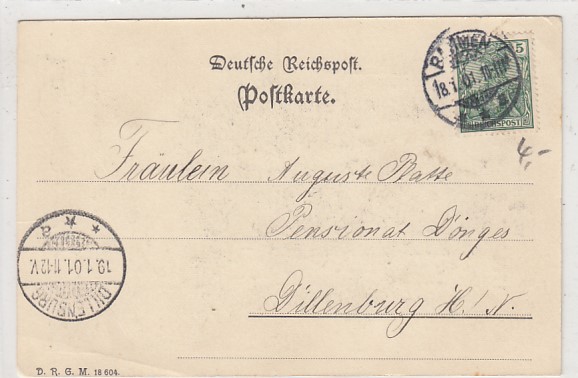 Deutsche Reichspost.
Postkarte.
BARMEN
18.1.01. 10-11N
5
REICHSPOST
4,-
Fräulein Auguste Batte
Pensionat Dönges
Dillenburg H. N.
DILLENBURG
19.1.01. 11-12V.
D. R. G. M. 18 604.